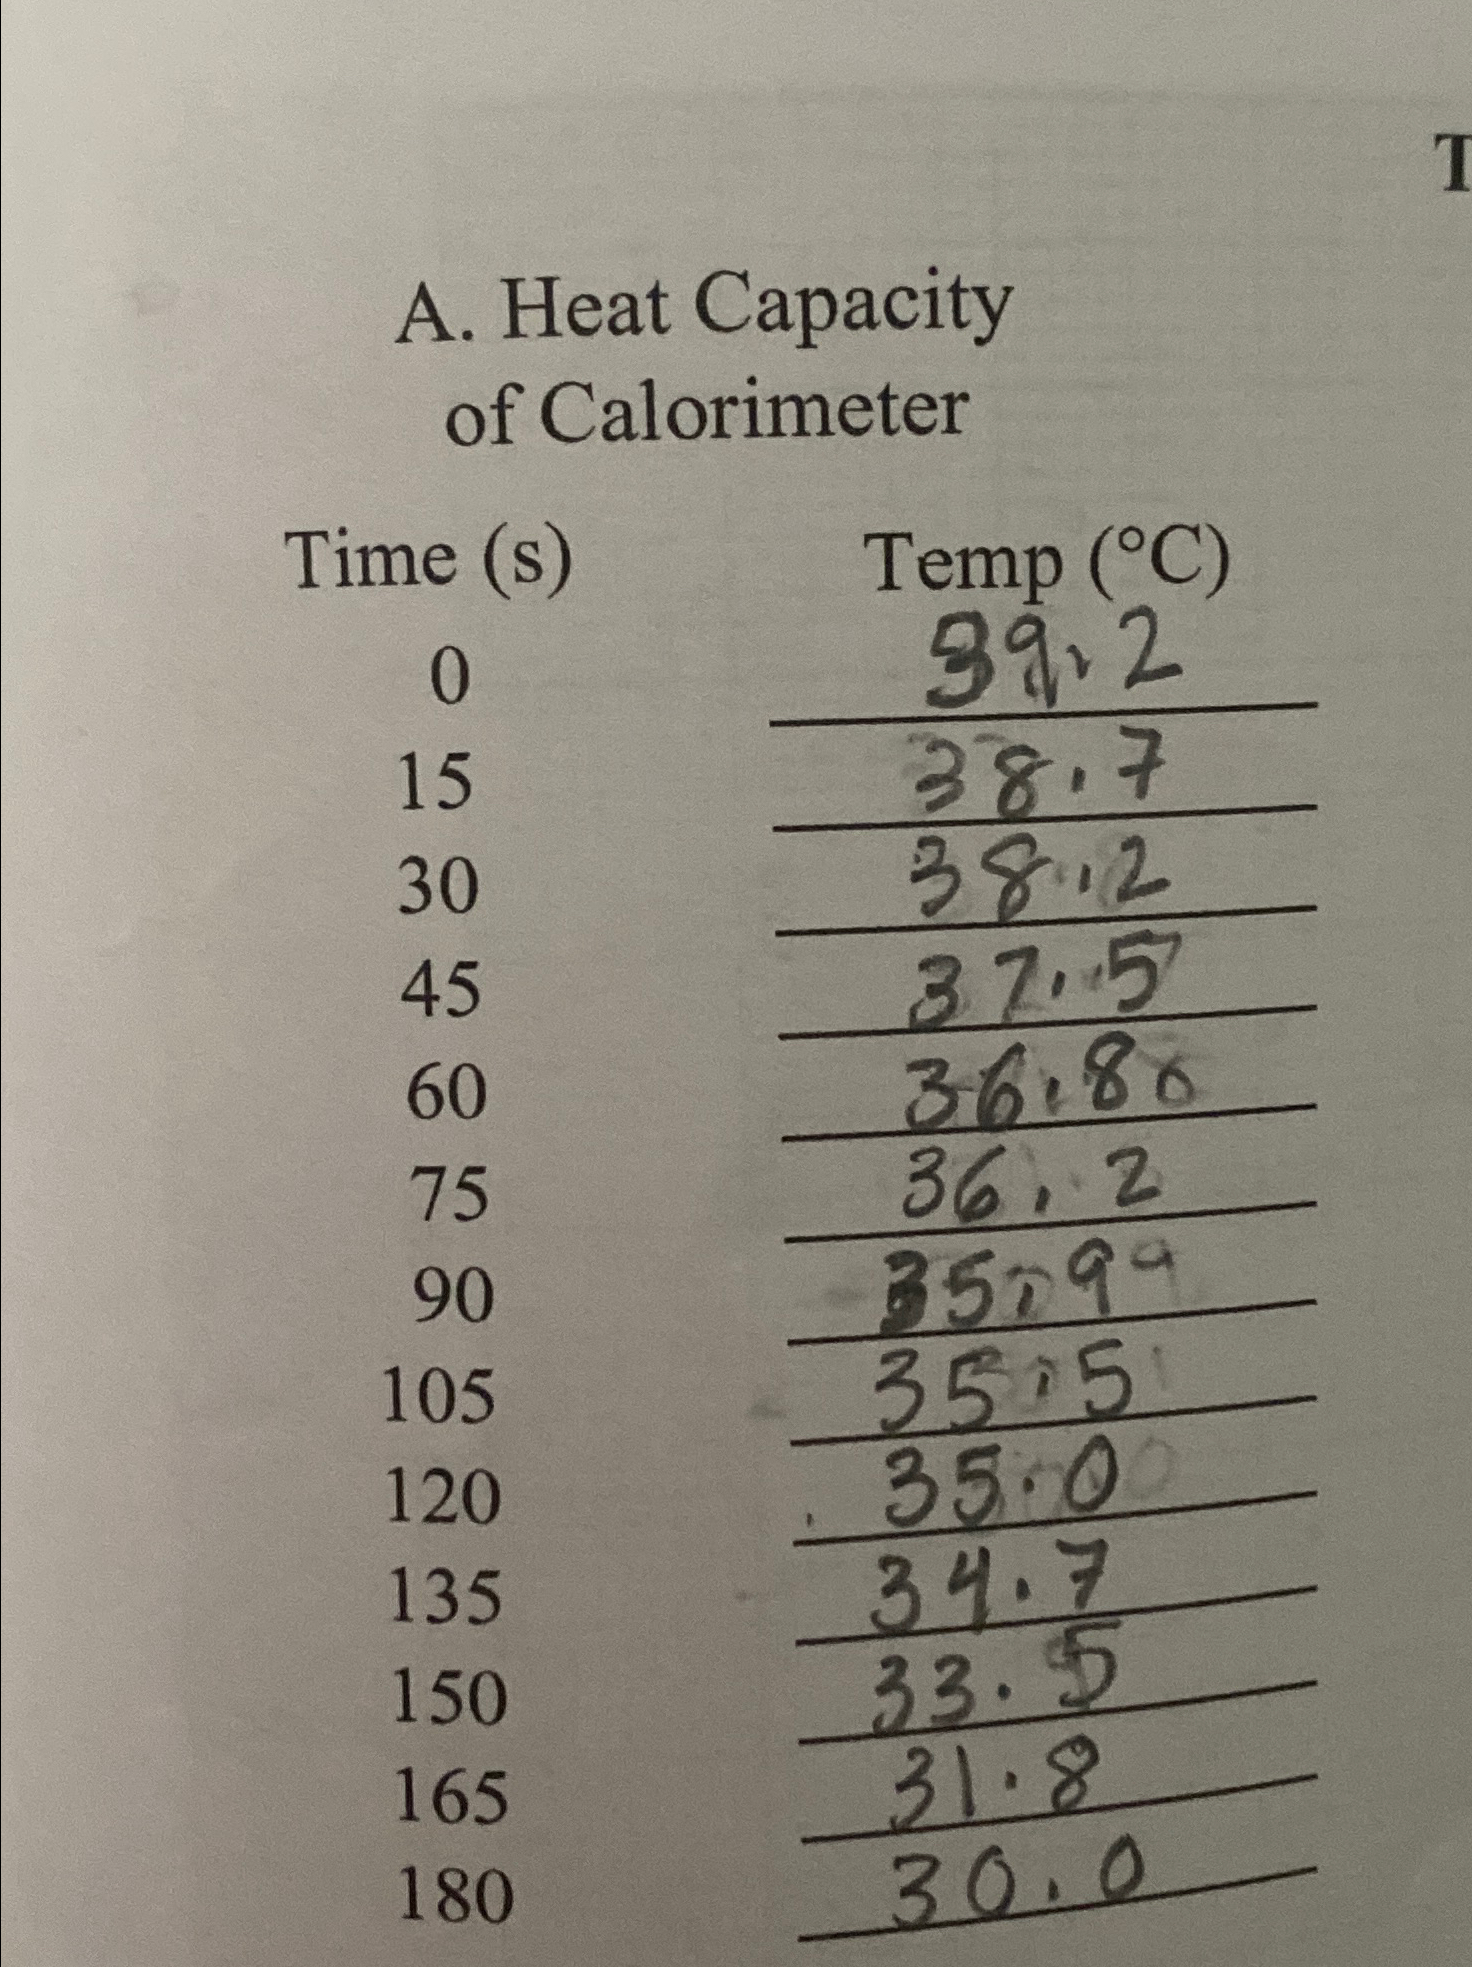 T
A. Heat Capacity
of Calorimeter
Time (s) Temp (°C)
0 39.2
15 38.7
30 38.2
45 37.5
60 36.8
75 36.2
90 35.9
105 35.5
120 35.0
135 34.7
150 33.5
165 31.8
180 30.0